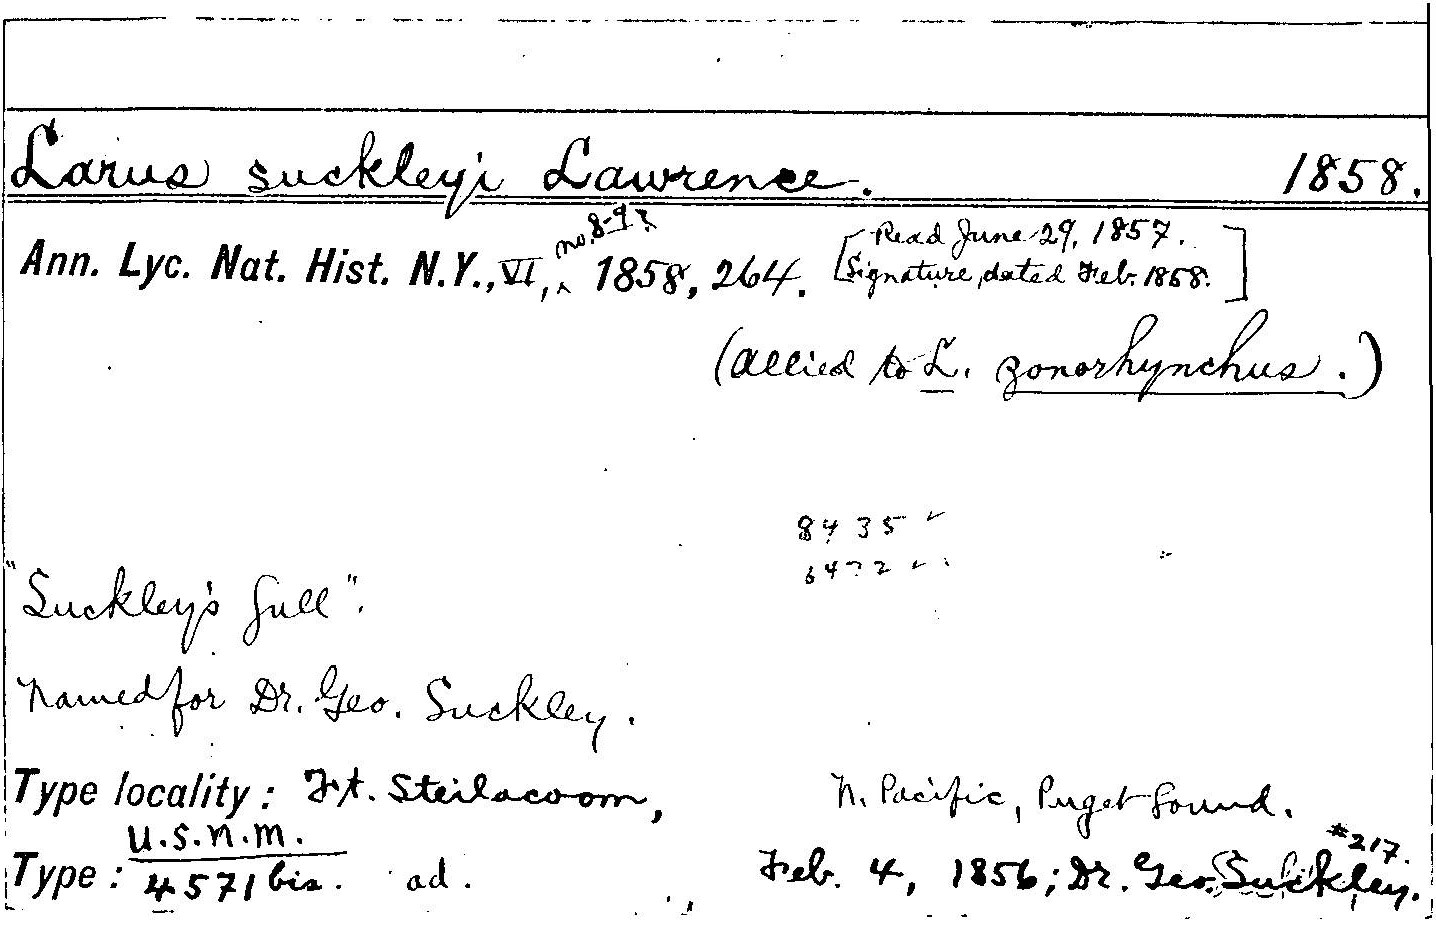 Larus suckleyi Lawrence. 1858.
Ann. Lyc. Nat. Hist. N.Y., VI, no. 8-9? ‸ 1858, 264. [Read June 29, 1857.
Signature dated Feb. 1858.]
(allied to L. zonorhynchus.)
8435 ✓
"Suckley's Gull".
Named for Dr. Geo. Suckley.
Type locality: Ft. Steilacoom, N. Pacific, Puget Sound.
U.S.N.M. #217.
Type: 4571 bis. ad. Feb. 4, 1856; Dr. Geo. Suckley.